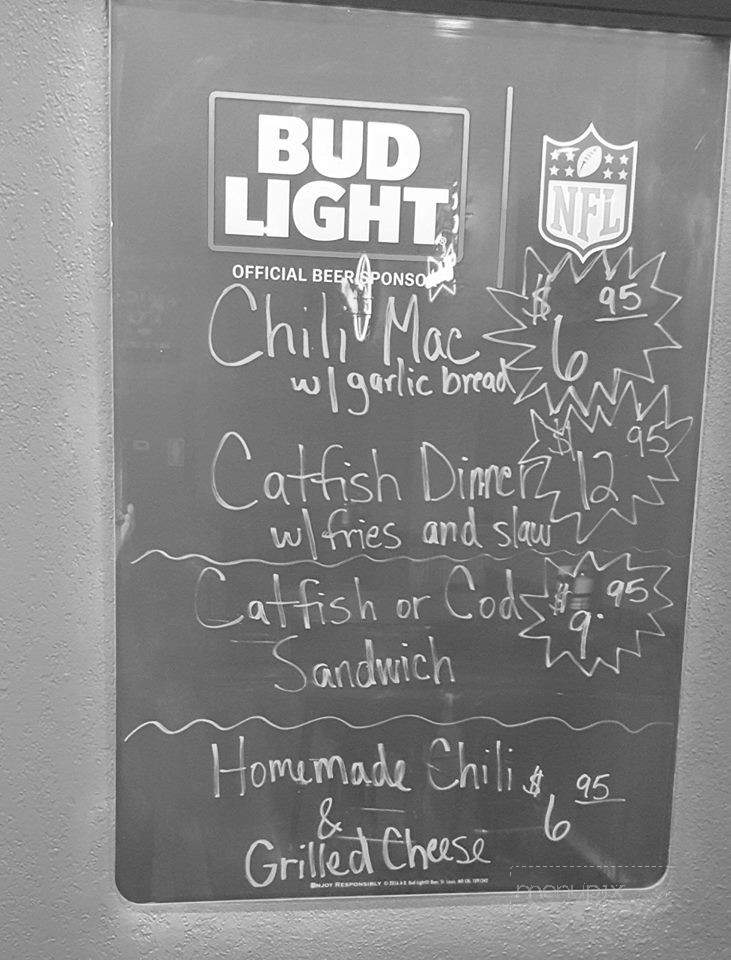 BUD
LIGHT
NFL
OFFICIAL BEER SPONSO
Chili Mac $6 95
w/ garlic bread
Catfish Dinner $12 95
w/ fries and slaw
Catfish or Cod $9. 95
Sandwich
Homemade Chili $6 95
&
Grilled Cheese
ENJOY RESPONSIBLY
menupix